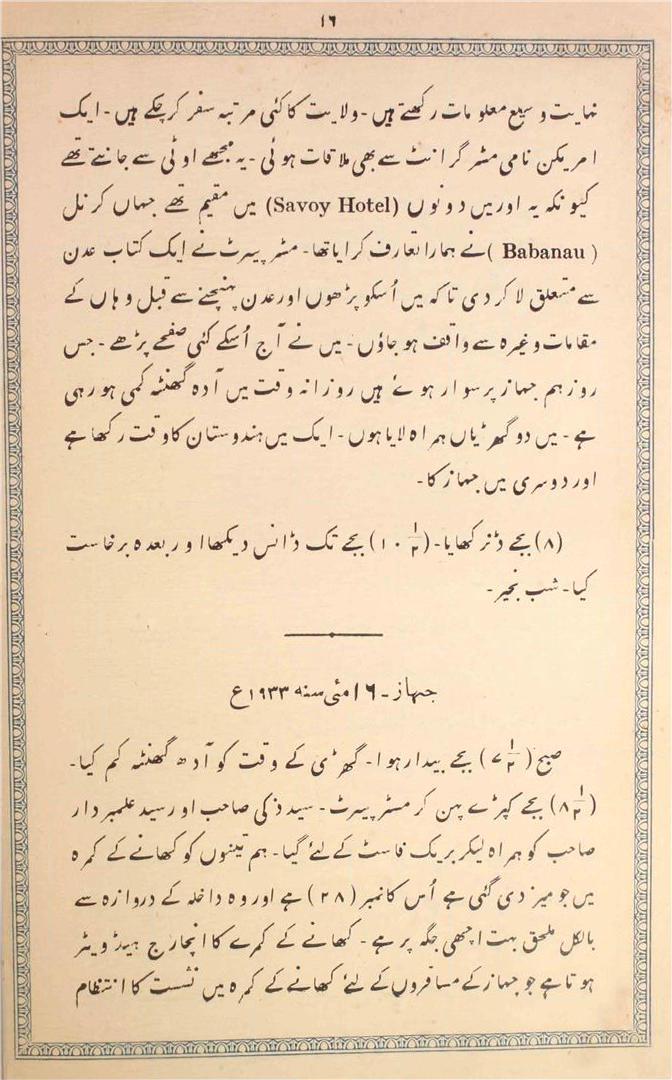 ١٦
نہایت وسیع معلومات رکھتے ہیں - ولایت کا کئی مرتبہ سفر کر چکے ہیں - ایک
امریکن نامی مسٹر گرانٹ سے بھی ملاقات ہوئی - یہ مجھے اوٹی سے جانتے تھے
کیونکہ یہ اور میں دونوں (Savoy Hotel) میں مقیم تھے جہاں کرنل
(Babanau) نے ہمارا تعارف کرایا تھا - مسٹر پیرٹ نے ایک کتاب عدن
سے متعلق لا کر دی تاکہ میں اُسکو پڑھوں اور عدن پہنچنے سے قبل وہاں کے
مقامات وغیرہ سے واقف ہو جاؤں - میں نے آج اُسکے کئی صفحے پڑھے - جس
روز ہم جہاز پر سوار ہوے ہیں روزانہ وقت میں آدہ گھنٹہ کمی ہو رہی
ہے - میں دو گھڑیاں ہمراہ لایا ہوں - ایک میں ہندوستان کا وقت رکھا ہے
اور دوسری میں جہاز کا -
(٨) بجے ڈنر کھایا - (١٠ ١/٢) بجے تک ڈانس دیکھا اور بعدہ برخاست
کیا - شب بخیر -
جہاز - ١٦ مئی سنہ ١٩٣٣ع
صبح (٧ ١/٢) بجے بیدار ہوا - گھڑی کے وقت کو آدھ گھنٹہ کم کیا -
(٨ ١/٢) بجے کپڑے پہن کر مسٹر پیرٹ - سید ذکی صاحب اور سید علمبردار
صاحب کو ہمراہ لیکر بریک فاسٹ کے لئے گیا - ہم تینوں کو کھانے کے کمرہ
میں جو میز دی گئی ہے اُس کا نمبر (٢٨) ہے اور وہ داخلہ کے دروازہ سے
بالکل ملحق بہت اچھی جگہ پر ہے - کھانے کے کمرے کا انچارج ہیڈ ویٹر
ہوتا ہے جو جہاز کے مسافروں کے لئے کھانے کے کمرہ میں نشست کا انتظام